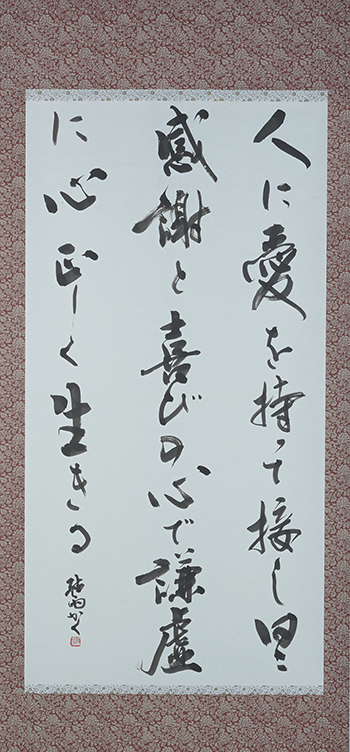 人に愛を持って接し日々
感謝と喜びの心で謙虚
に心正しく生きる